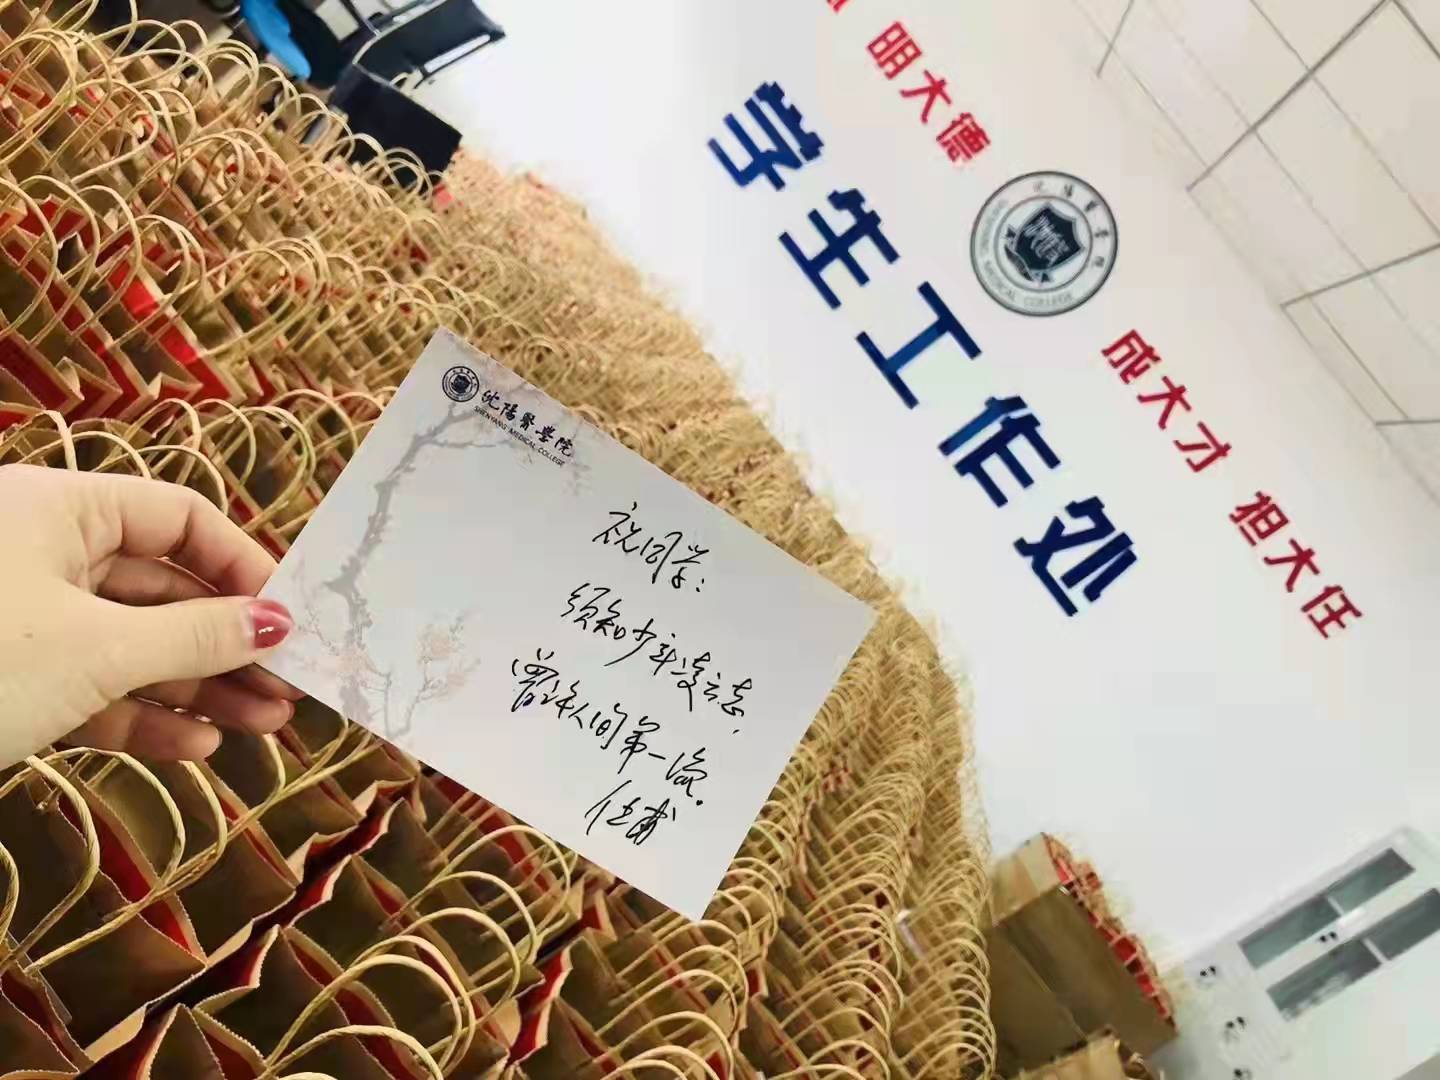 明大德
成大才 担大任
沈陽醫學院
SHENYANG MEDICAL COLLEGE
学生工作处
沈陽醫學院
SHENYANG MEDICAL COLLEGE
祝同学：
须知少年凌云志，
曾许人间第一流。